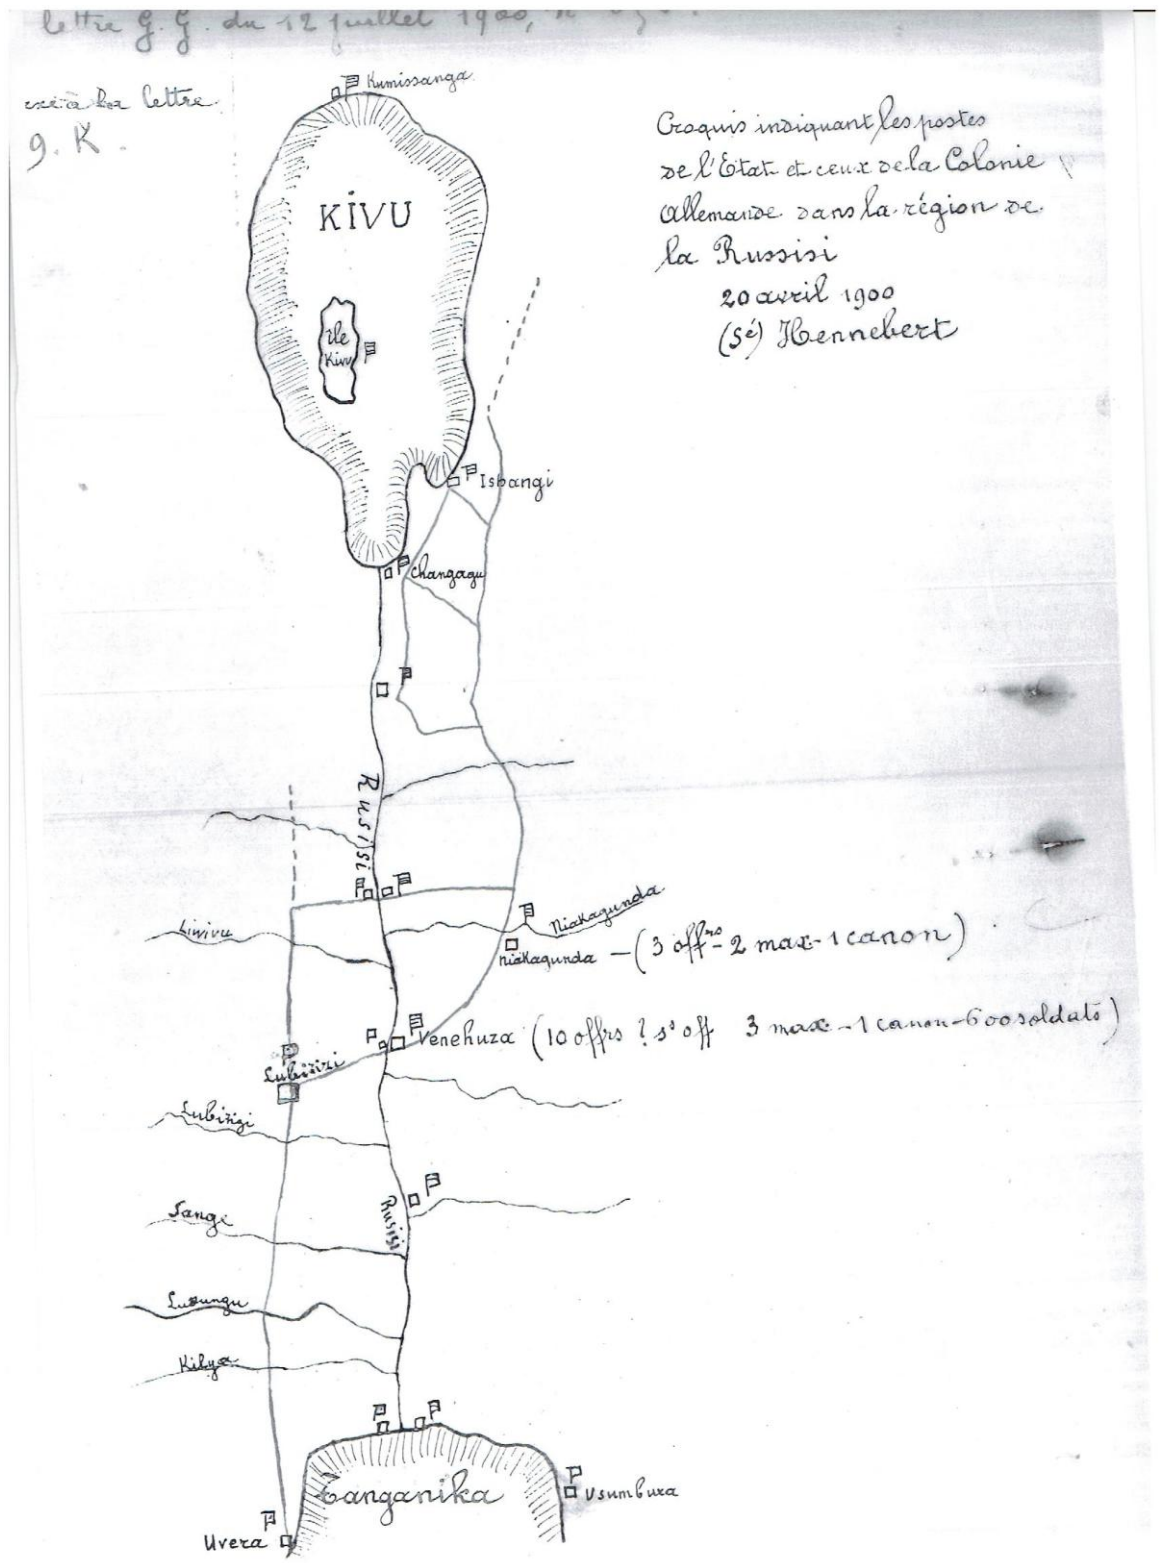 lettre G. G. du 12 juillet 1900, n
à la lettre
9. K.
Kumissanga
Croquis indiquant les postes
de l'Etat et ceux de la Colonie
Allemande dans la région de
la Russisi
20 avril 1900
(Sé) Hennebert
KIVU
Ile
Kivu
Ishangi
Changagu
Rusisi
Niakagunda
Liwivu
Niakagunda – (3 offrs – 2 max – 1 canon)
Venehuza (10 offrs ? s/s off 3 max – 1 canon – 600 soldats)
Lubirizi
Lubirigi
Sange
Rusisi
Luvungu
Kilya
Tanganika
Usumbura
Uvera